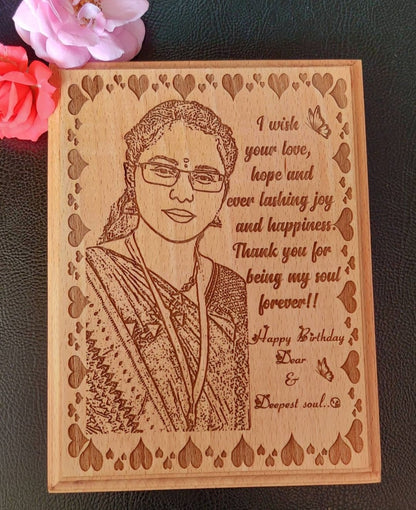 I wish
your love,
hope and
ever lashing joy
and happiness.
Thank you for
being my soul
forever!!
Happy Birthday
Dear
&
Deepest soul..